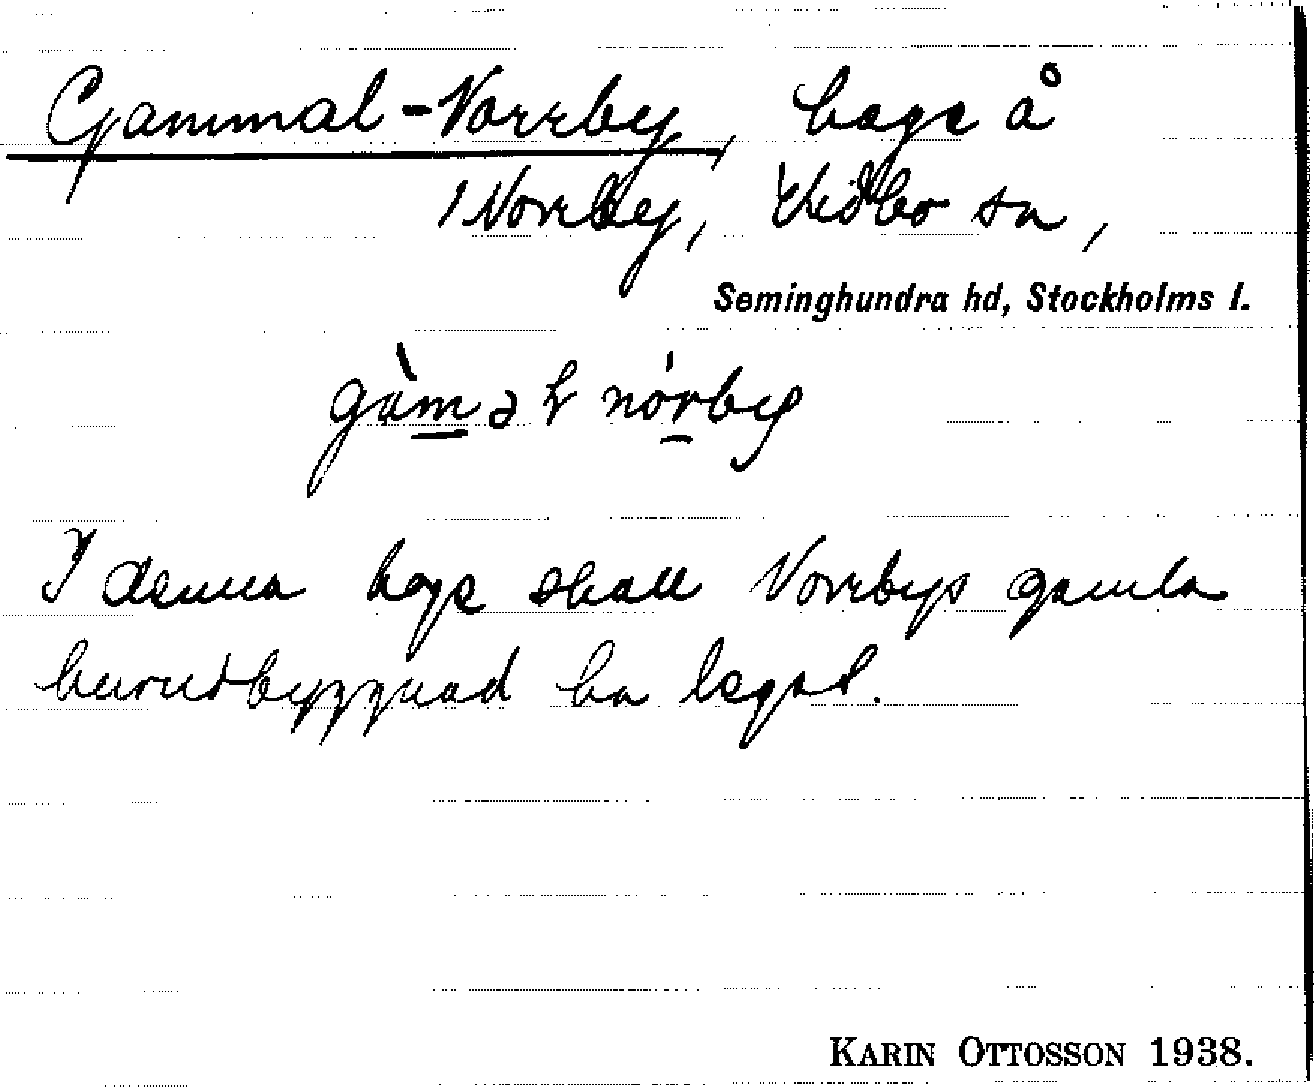 Gammal-Norrby, hage å
1 Norrby, Vidbo sn,
Seminghundra hd, Stockholms l.
gàməl nórby
I denna hage skall Norrbys gamla
huvudbyggnad ha legat.
KARIN OTTOSSON 1938.